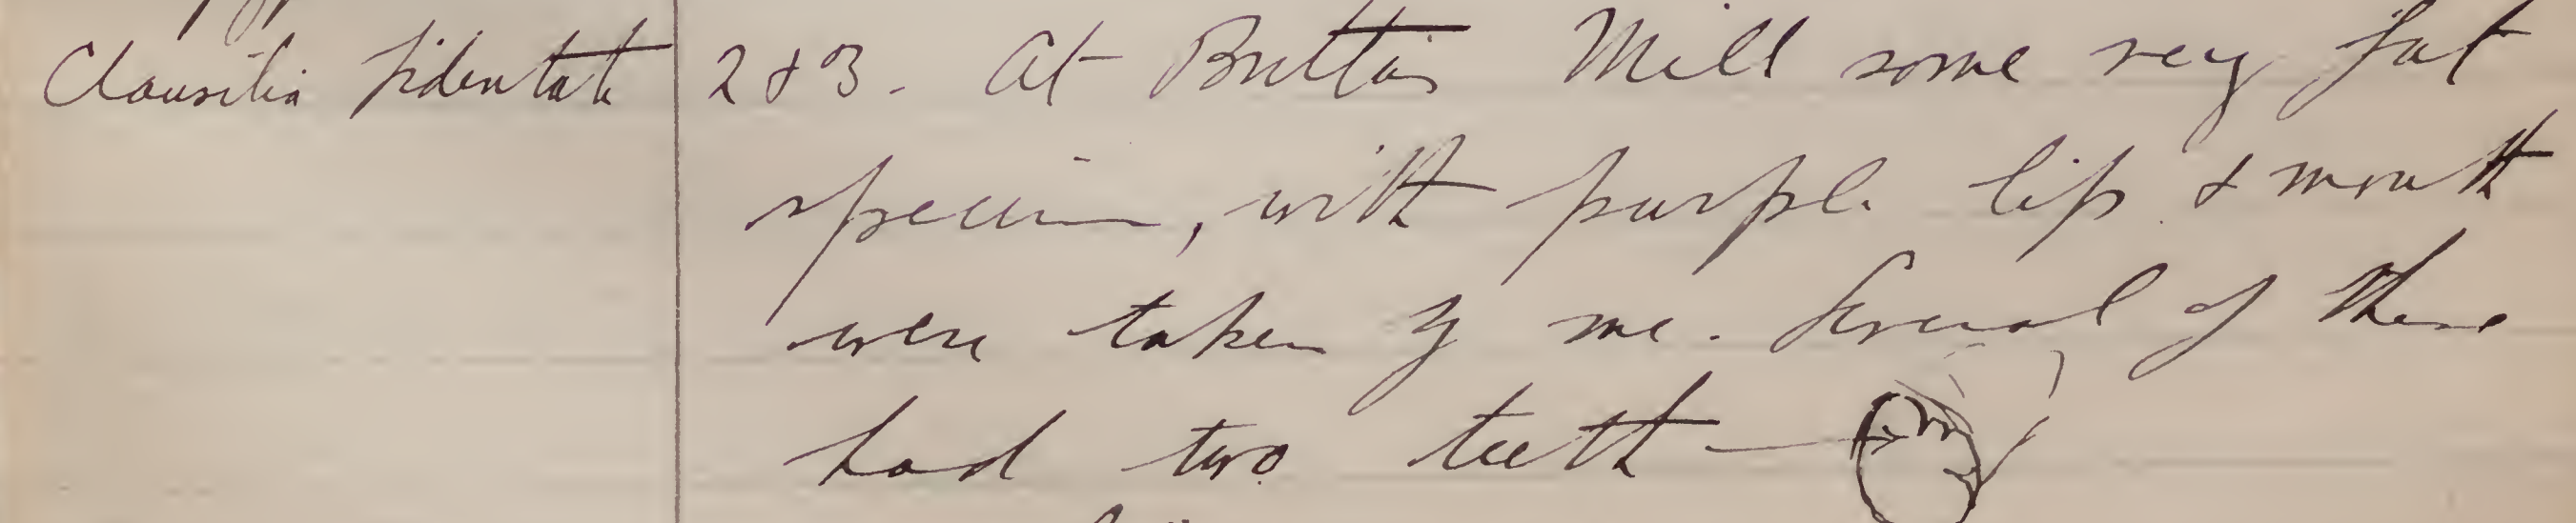 Clausilia bidentata 2 & 3. At Mill some very fat
specimens, with purple lip & mouth
were taken by me. Several of these
had two teeth —